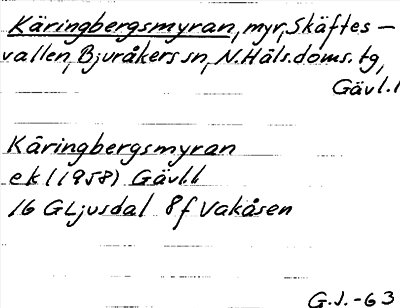 Käringbergsmyran, myr, Skäftes-
vallen, Bjuråkers sn, N.Häls.doms.tg,
Gävl.l
Käringbergsmyran
ek1(1958) Gävl.l.
16 G Ljusdal 8f Vakåsen
G.J.-63